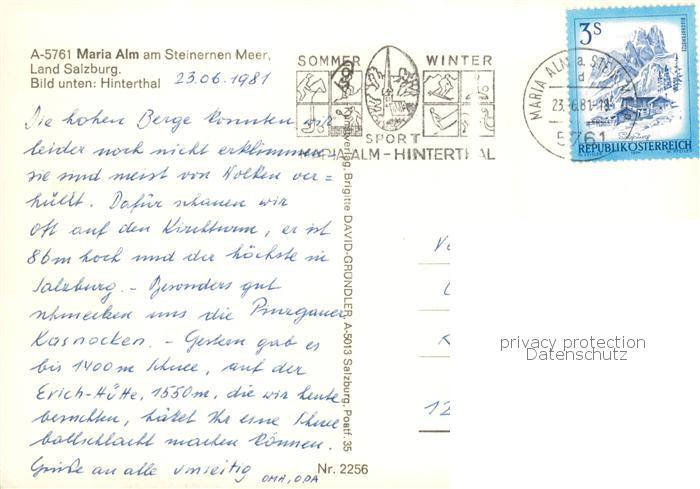 A-5761 Maria Alm am Steinernen Meer,
Land Salzburg.
Bild unten: Hinterthal 23.06.1981
Die hohen Berge konnten wir
leider noch nicht erklimmen,
sie sind meist von Wolken ver=
hüllt. Dafür schauen wir
oft auf den Kirchturm, er ist
86m hoch und der höchste in
Salzburg. - Besonders gut
schmecken uns die Pinzgauer
Kasnocken. - Gestern gab es
bis 1400m Schnee, auf der
Erich-Hütte, 1550m, die wir heute
besuchten, hättet Ihr eine Schnee
ballschlacht machen können.
Grüße an alle umseitig OMA, OPA
SOMMER WINTER
SPORT
MARIA ALM-HINTERTHAL
MARIA ALM a. STEIN
23.6.81-18
5761
3S
REPUBLIK ÖSTERREICH
Brigitte DAVID-GRÜNDLER, A-5013 Salzburg, Postf. 35
privacy protection
Datenschutz
12
Nr. 2256